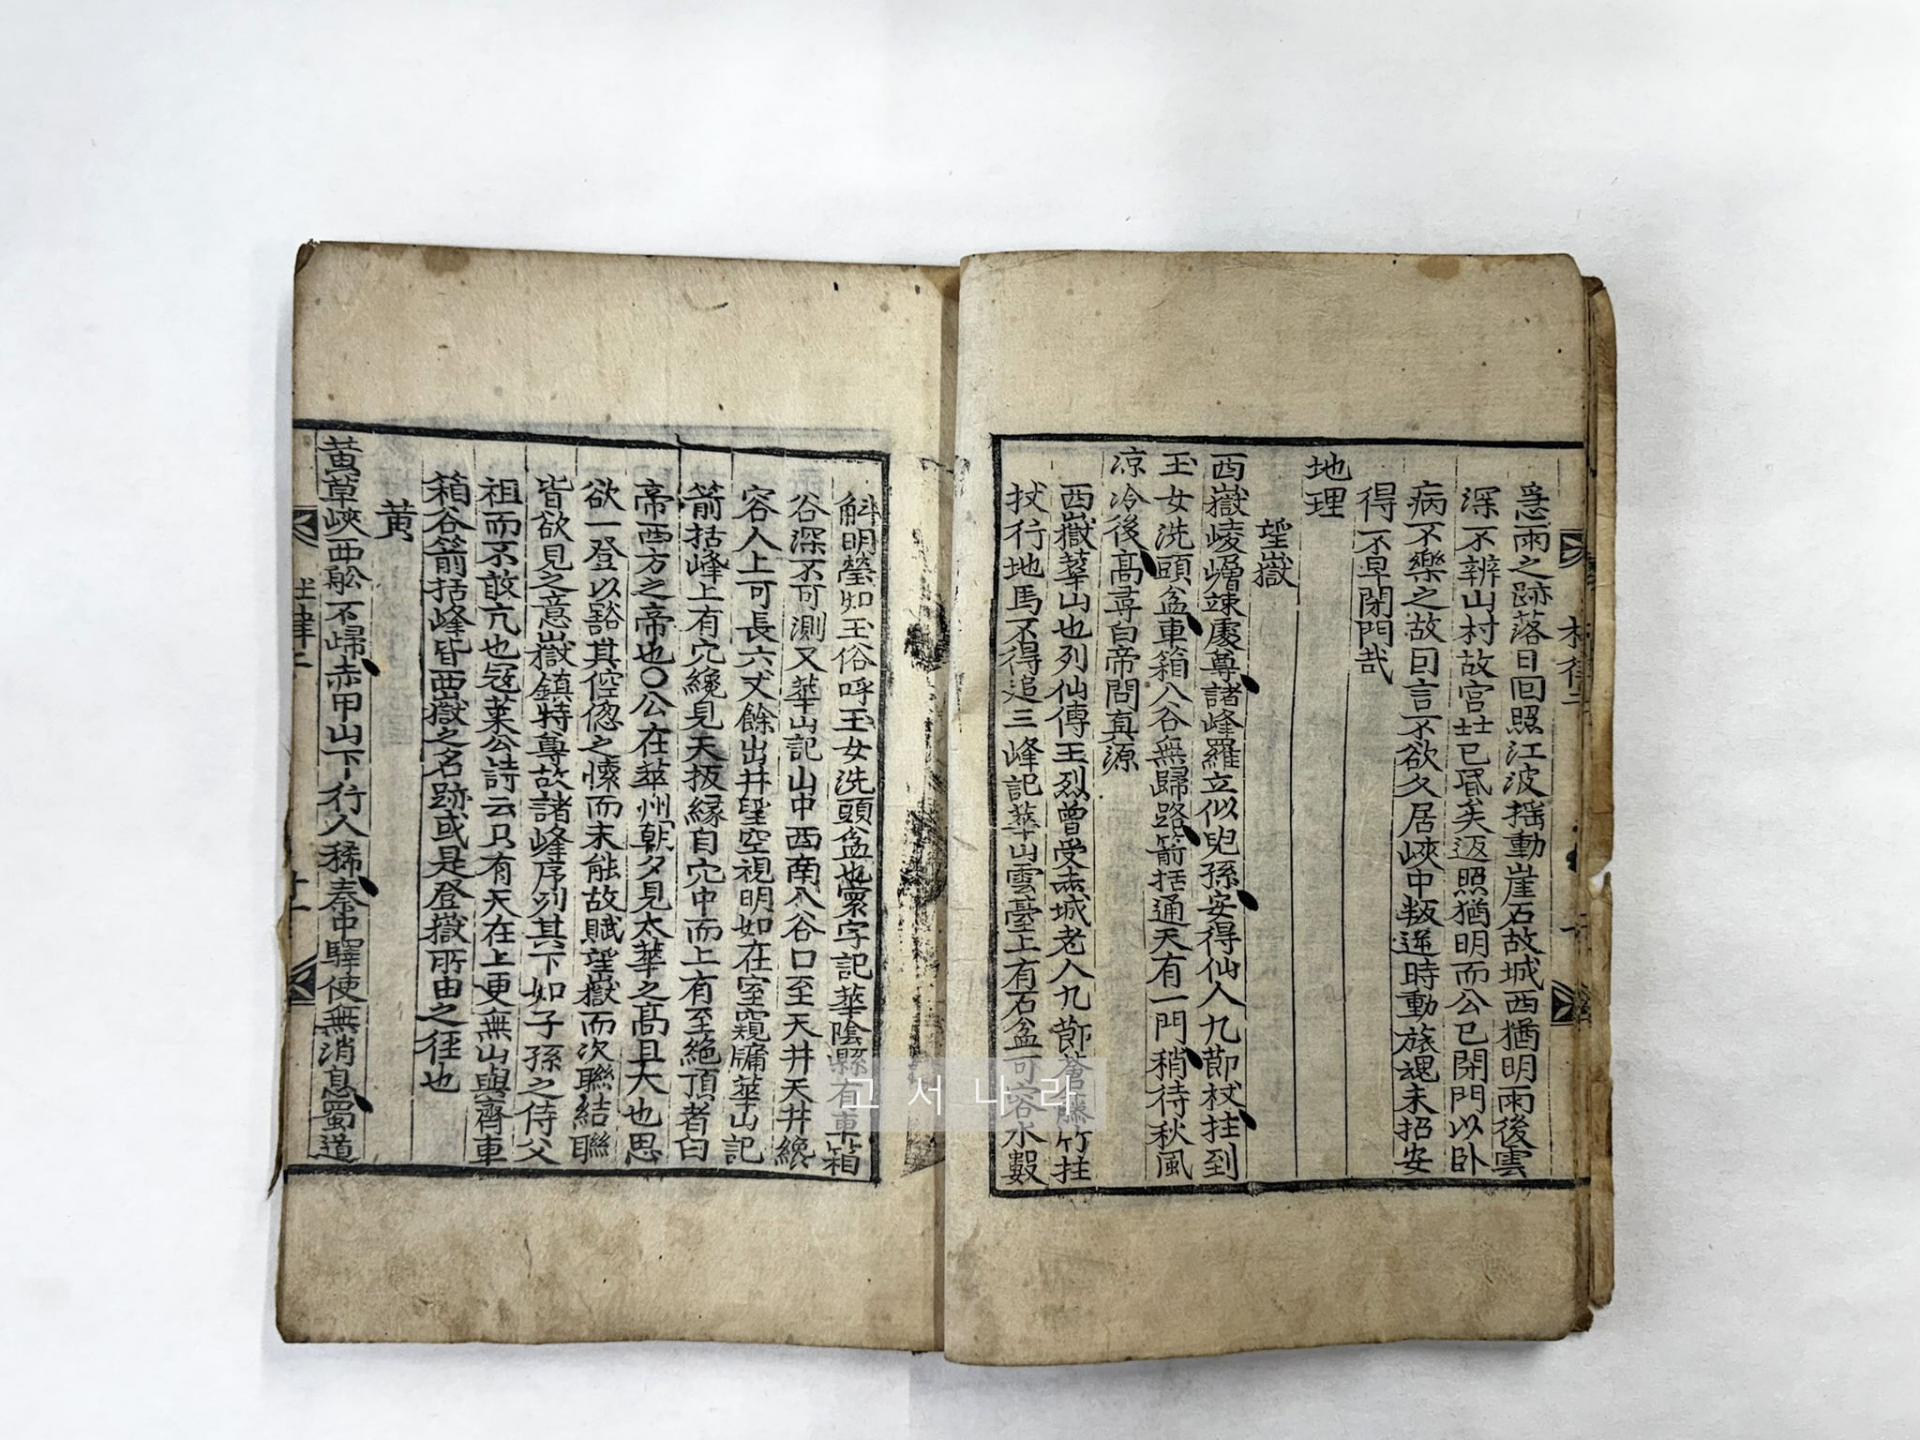 急雨之跡落日回照江波揺動崖石故城西猶明雨後雲
深不辨山村故宫士已昏矣返照猶明而公已閉門以卧
病不樂之故回言不欲久居峽中叛逆時動旅魂未招安
得不早閉門哉
地理
望嶽
西嶽崚嶒竦處尊諸峰羅立似兒孫安得仙人九節杖拄到
玉女洗頭盆車箱入谷無歸路箭括通天有一門稍待秋風
凉冷後高尋白帝問真源
西嶽華山也列仙傳王烈曾受赤城老人九節蒼藤竹拄
杖行地馬不得追三峰記華山雲臺上有石盆可容水數
斛明瑩如玉俗呼玉女洗頭盆也寰宇記華陰縣有車箱
谷深不可測又華山記山中西南入谷口至天井天井纔
容人上可長六丈餘出井望空視明如在室窺牖華山記
箭括峰上有穴纔見天扳緣自穴中而上有至絶頂者白
帝西方之帝也〇公在華州朝夕見太華之高且大也思
欲一登以豁其倥傯之懷而未能故賦望嶽而次聯結聯
皆欲見之意嶽鎮特尊故諸峰序列其下如子孫之侍父
祖而不敢亢也寇萊公詩云只有天在上更無山與齊車
箱谷箭括峰皆西嶽之名跡或是登嶽所由之徑也
黄
黄草峽西舩不歸赤甲山下行人稀秦中驛使無消息蜀道
杜律二
고서나라